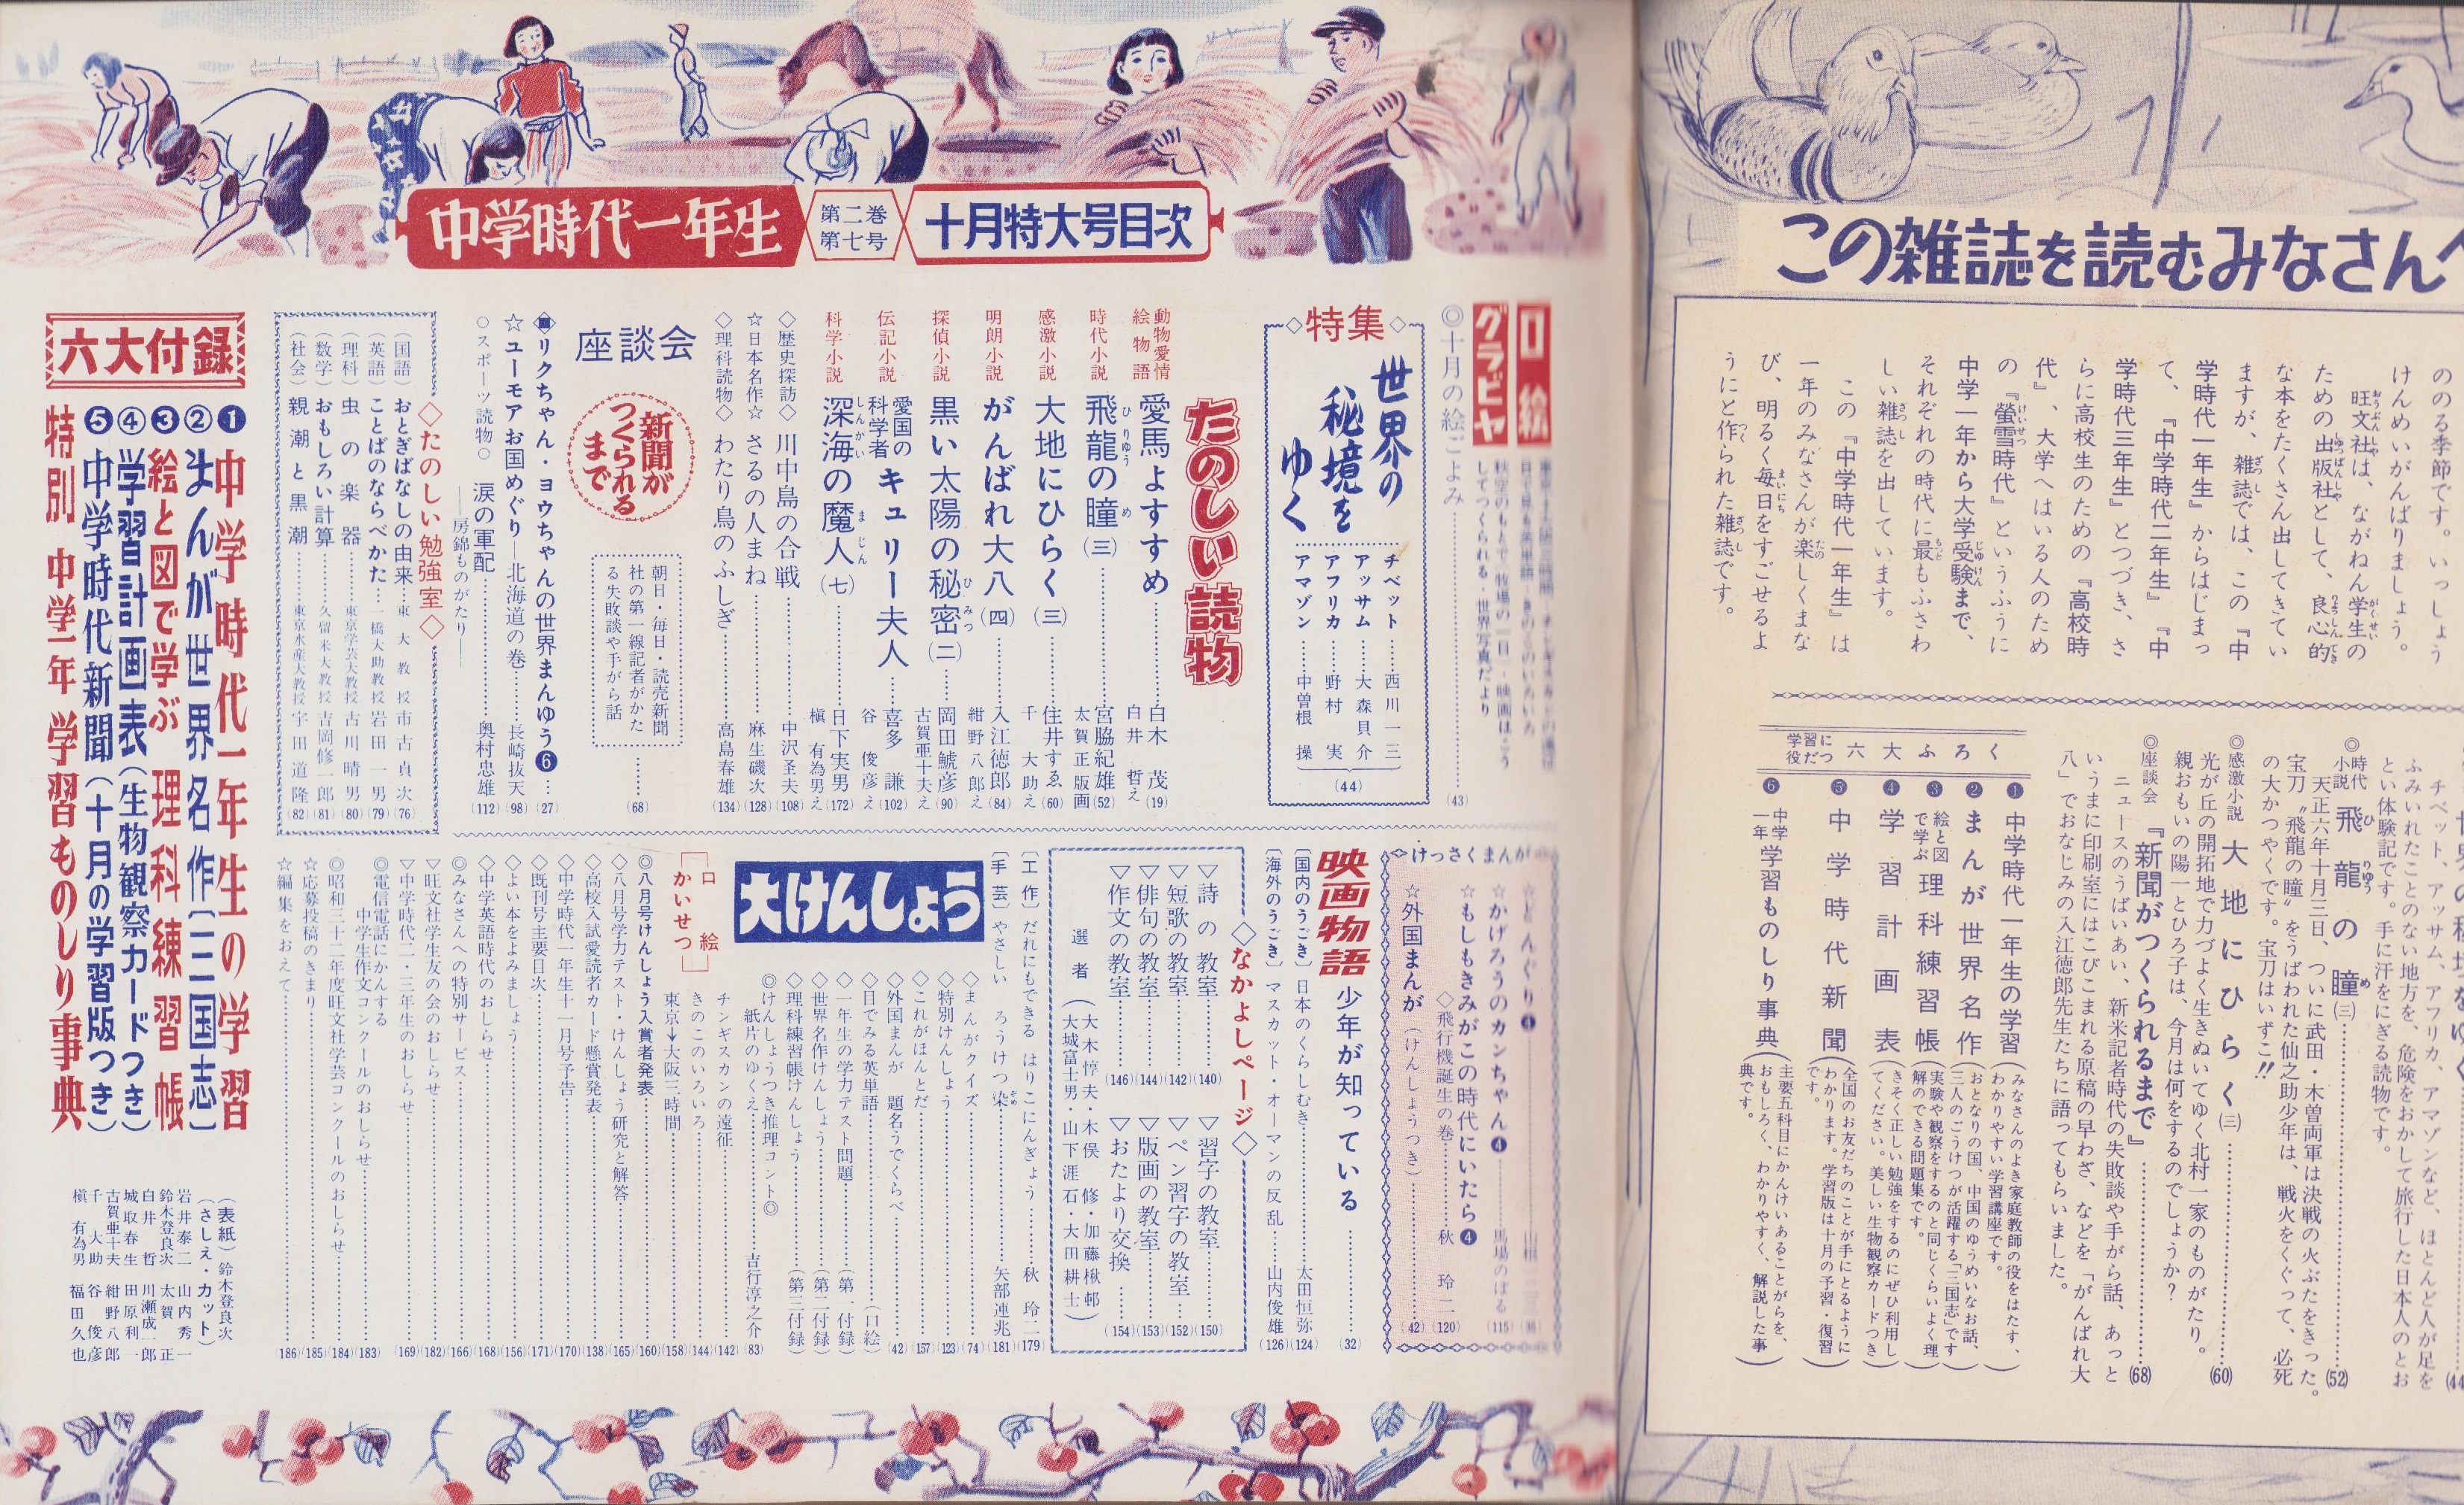 この雑誌を読むみなさんへ
ののる季節です。いっしょう
けんめいがんばりましょう。
旺文社は、ながねん学生の
ための出版社として、良心的
な本をたくさん出してきてい
ますが、雑誌では、この『中
学時代一年生』からはじまっ
て、『中学時代二年生』『中
学時代三年生』とつづき、さ
らに高校生のための『高校時
代』、大学へはいる人のため
の『螢雪時代』というふうに
中学一年から大学受験まで、
それぞれの時代に最もふさわ
しい雑誌を出しています。
この『中学時代一年生』は
一年のみなさんが楽しくまな
び、明るく毎日をすごせるよ
うにと作られた雑誌です。
チベット、アッサム、アフリカ、アマゾンなど、ほとんど人が足を
ふみいれたことのない地方を、危険をおかして旅行した日本人のとお
とい体験記です。手に汗をにぎる読物です。
◎時代小説 飛龍の瞳(三)……(52)
天正六年十月三日、ついに武田・木曽両軍は決戦の火ぶたをきった。
宝刀〝飛龍の瞳〟をうばわれた仙之助少年は、戦火をくぐって、必死
の大かつやくです。宝刀はいずこ!!
◎感激小説 大地にひらく(三)……(60)
光が丘の開拓地で力づよく生きぬいてゆく北村一家のものがたり。
親おもいの陽一とひろ子は、今月は何をするのでしょうか?
◎座談会 『新聞がつくられるまで』……(68)
ニュースのうばいあい、新米記者時代の失敗談や手がら話、あっと
いうまに印刷室にはこびこまれる原稿の早わざ、などを「がんばれ大
八」でおなじみの入江徳郎先生たちに語ってもらいました。
学習に役だつ 六大ふろく
❶中学時代一年生の学習(みなさんのよき家庭教師の役をはたす、わかりやすい学習講座です。)
❷まんが世界名作(おとなりの国、中国のゆうめいなお話、三人のごうけつが活躍する「三国志」です)
❸絵と図で学ぶ 理科練習帳(実験や観察をするのと同じくらいよく理解のできる問題集です。)
❹学習計画表(きそく正しい勉強をするのにぜひ利用してください。美しい生物観察カードつき)
❺中学時代新聞(全国のお友だちのことが手にとるようにわかります。学習版は十月の予習・復習です。)
❻中学一年 学習ものしり事典(主要五科目にかんけいあることがらを、おもしろく、わかりやすく、解説した事典です。)
中学時代一年生
第二巻
第七号
十月特大号目次
口絵
グラビヤ
◎十月の絵ごよみ……(43)
◇特集◇
世界の
秘境を
ゆく
チベット……西川一三
アッサム……大森貝介
アフリカ……野村実
アマゾン……中曽根操
(44)
たのしい読物
動物愛情絵物語 愛馬よすすめ……白木茂 白井哲え(19)
時代小説 飛龍の瞳(三)……宮脇紀雄 太賀正版画(52)
感激小説 大地にひらく(三)……住井すゑ 千大助え(60)
明朗小説 がんばれ大八(四)……入江徳郎 紺野八郎え(84)
探偵小説 黒い太陽の秘密(二)……岡田鯱彦 古賀亜十夫え(90)
伝記小説 愛国の科学者 キュリー夫人……喜多謙 谷俊彦え(102)
科学小説 深海の魔人(七)……日下実男 槇有為男え(172)
◇歴史探訪◇ 川中島の合戦……中沢圣夫(108)
☆日本名作☆ さるの人まね……麻生磯次(128)
◇理科読物◇ わたり鳥のふしぎ……高島春雄(134)
座談会
新聞が
つくられる
まで
朝日・毎日・読売新聞
社の第一線記者がかた
る失敗談や手がら話
……(68)
◈リクちゃん・ヨウちゃんの世界まんゆう❻…(27)
☆ユーモアお国めぐり―北海道の巻……長崎抜天(98)
○スポーツ読物○ 涙の軍配……奥村忠雄(112)
――房錦ものがたり――
◇たのしい勉強室◇
(国語) おとぎばなしの由来…東大教授 市古貞次(76)
(英語) ことばのならべかた…一橋大助教授 岩田一男(79)
(理科) 虫の楽器……東京学芸大教授 古川晴男(80)
(数学) おもしろい計算……久留米大教授 吉岡修一郎(81)
(社会) 親潮と黒潮……東京水産大教授 宇田道隆(82)
六大付録
❶中学時代一年生の学習
②まんが世界名作〔三国志〕
❸絵と図で学ぶ 理科練習帳
④学習計画表(生物観察カードつき)
❺中学時代新聞(十月の学習版つき)
特別 中学一年 学習ものしり事典
けっさくまんが
☆かげろうのカンちゃん❹……馬場のぼる(115)
☆もしもきみがこの時代にいたら❹
◇飛行機誕生の巻……秋玲二(120)
☆外国まんが(けんしょうつき)……(42)
映画物語 少年が知っている……(32)
〔国内のうごき〕日本のくらしむき……太田恒弥(124)
〔海外のうごき〕マスカット・オーマンの反乱……山内俊雄(126)
◇なかよしページ◇
▽詩の教室……(140)
▽短歌の教室……(142)
▽俳句の教室……(144)
▽作文の教室……(146)
▽習字の教室……(150)
▽ペン習字の教室……(152)
▽版画の教室……(153)
▽おたより交換……(154)
選者(大木惇夫・木俣修・加藤楸邨
大城富士男・山下涯石・大田耕士)
〔工作〕だれにもできる はりこにんぎょう……秋玲二(179)
〔手芸〕やさしい ろうけつ染……矢部連兆(181)
大けんしょう
◇まんがクイズ……(74)
◇特別けんしょう……(123)
◇これがほんとだ……(157)
◇外国まんが 題名うでくらべ……(42)
◇目でみる英単語……(口絵)
◇一年生の学力テスト問題……(第一付録)
◇世界名作けんしょう……(第二付録)
◇理科練習帳けんしょう……(第三付録)
◎けんしょうつき推理コント◎
紙片のゆくえ……吉行淳之介(83)
〔口絵かいせつ〕
チンギスカンの遠征……(142)
きのこのいろいろ……(144)
東京→大阪三時間……(158)
◎八月号けんしょう入賞者発表……(160)
◇八月号学力テスト・けんしょう研究と解答……(165)
◇高校入試愛読者カード懸賞発表……(138)
◇中学時代一年生十一月号予告……(170)
◇既刊号主要目次……(171)
◇よい本をよみましょう……(156)
◇中学英語時代のおしらせ……(168)
◎みなさんへの特別サービス……(166)
▽旺文社学生友の会のおしらせ……(182)
▽中学時代二・三年生のおしらせ……(169)
◎電信電話にかんする
中学生作文コンクールのおしらせ……(183)
◎昭和三十二年度旺文社学芸コンクールのおしらせ…(184)
☆応募投稿のきまり……(185)
☆編集をおえて……(186)
(表紙)鈴木登良次
(さしえ・カット)
岩井泰二 山内秀一
鈴木登良次 太賀正
白井哲 川瀬成一郎
城取春生 田原利一
古賀亜十夫 紺野八郎
千大助 谷俊彦
槇有為男 福田久也